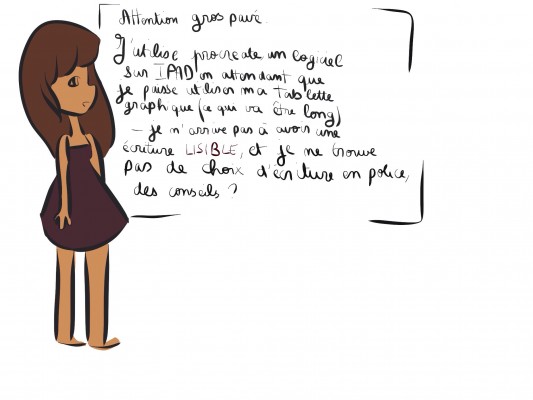 Attention gros pavé.
J'utilise procreate, un logiciel
sur IPAD en attendant que
je puisse utiliser ma tablette
graphique (ce qui va être long)
— je n'arrive pas à avoir une
écriture LISIBLE, et je ne trouve
pas de choix d'écriture en police,
des conseils ?